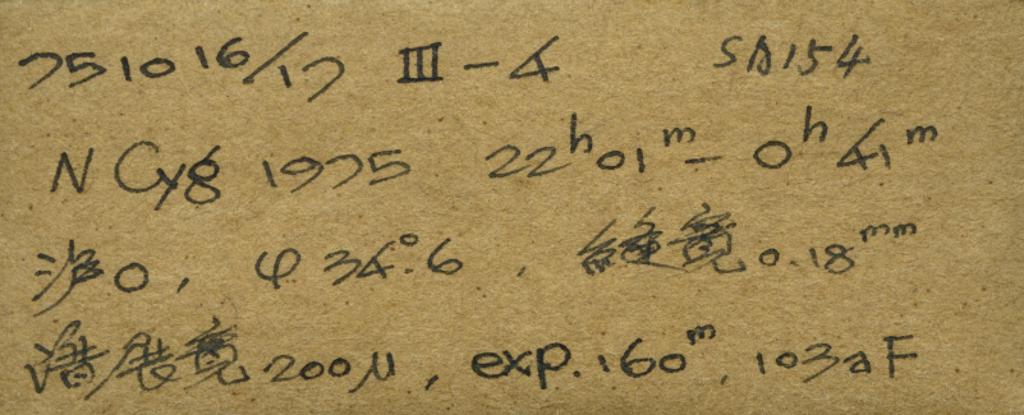 751016/17 III-4 SA154
N Cyg 1975 22h01m-0h41m
沪0, φ34°.6, 缝宽0.18mm
谱展宽200μ, exp.160m, 103aF